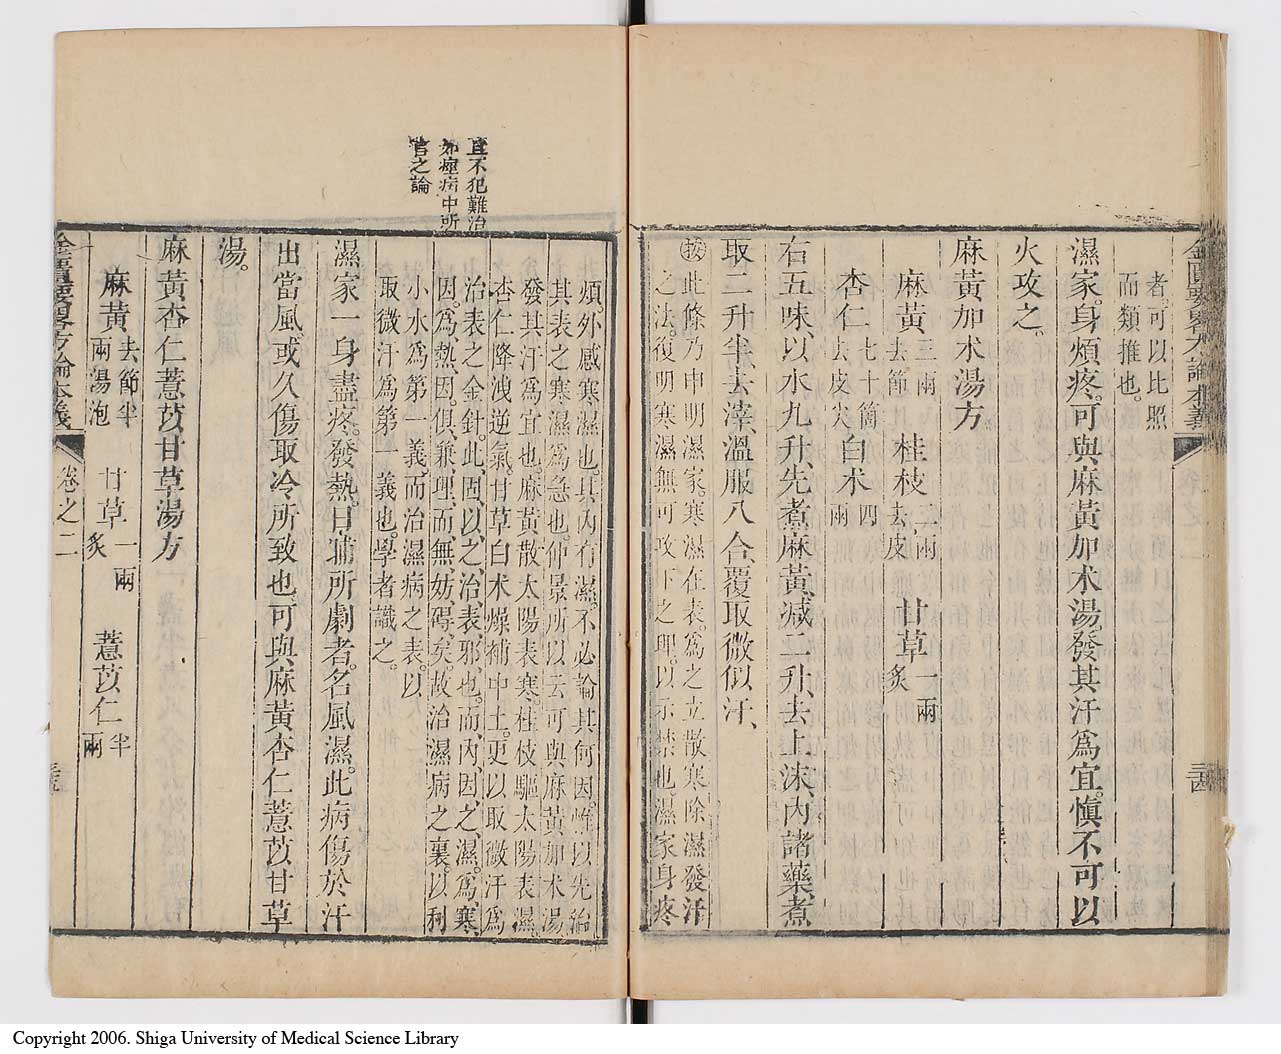 金匱要畧方論本義
者可以比照
而類推也。
濕家。身煩疼。可與麻黃加术湯。發其汗爲宜。慎不可以
火攻之。
麻黃加术湯方
麻黃三兩去節 桂枝二兩去皮 甘草一兩炙
杏仁七十箇去皮尖 白术四兩
右五味、以水九升、先煮麻黃、減二升、去上沫、內諸藥、煮
取二升半、去滓、溫服八合、覆取微似汗、
按此條乃申明濕家。寒濕在表。爲之立散寒除濕發汗
之法。復明寒濕無可攻下之理。以示禁也。濕家身疼
煩。外感寒濕也。其內有濕。不必論其何因。惟以先治
其表之寒濕爲急也。仲景所以云可與麻黃加术湯
發其汗爲宜也。麻黃散太陽表寒。桂枝驅太陽表濕。
杏仁降洩逆氣。甘草白术燥補中土。更以取微汗爲
治表之金針。此固以之治表邪也。而內因之濕。爲寒
因。爲熱因。俱兼理而無妨碍矣。故治濕病之裏。以利
小水爲第一義。而治濕病之表。以
取微汗爲第一義也。學者識之。
濕家一身盡疼。發熱。日晡所劇者。名風濕。此病傷於汗
出當風。或久傷取冷所致也。可與麻黃杏仁薏苡甘草
湯。
麻黃杏仁薏苡甘草湯方
麻黃去節半兩湯泡 甘草一兩炙 薏苡仁半兩
金匱要畧方論本義 卷之二
宜不犯難治
如痙病中所
言之論
Copyright 2006. Shiga University of Medical Science Library